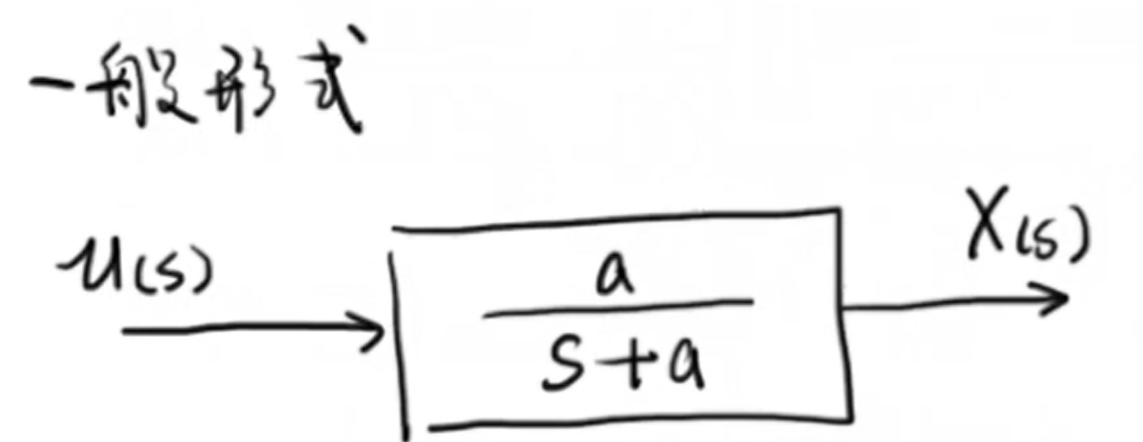 一般形式
u(s)
a
s+a
X(s)